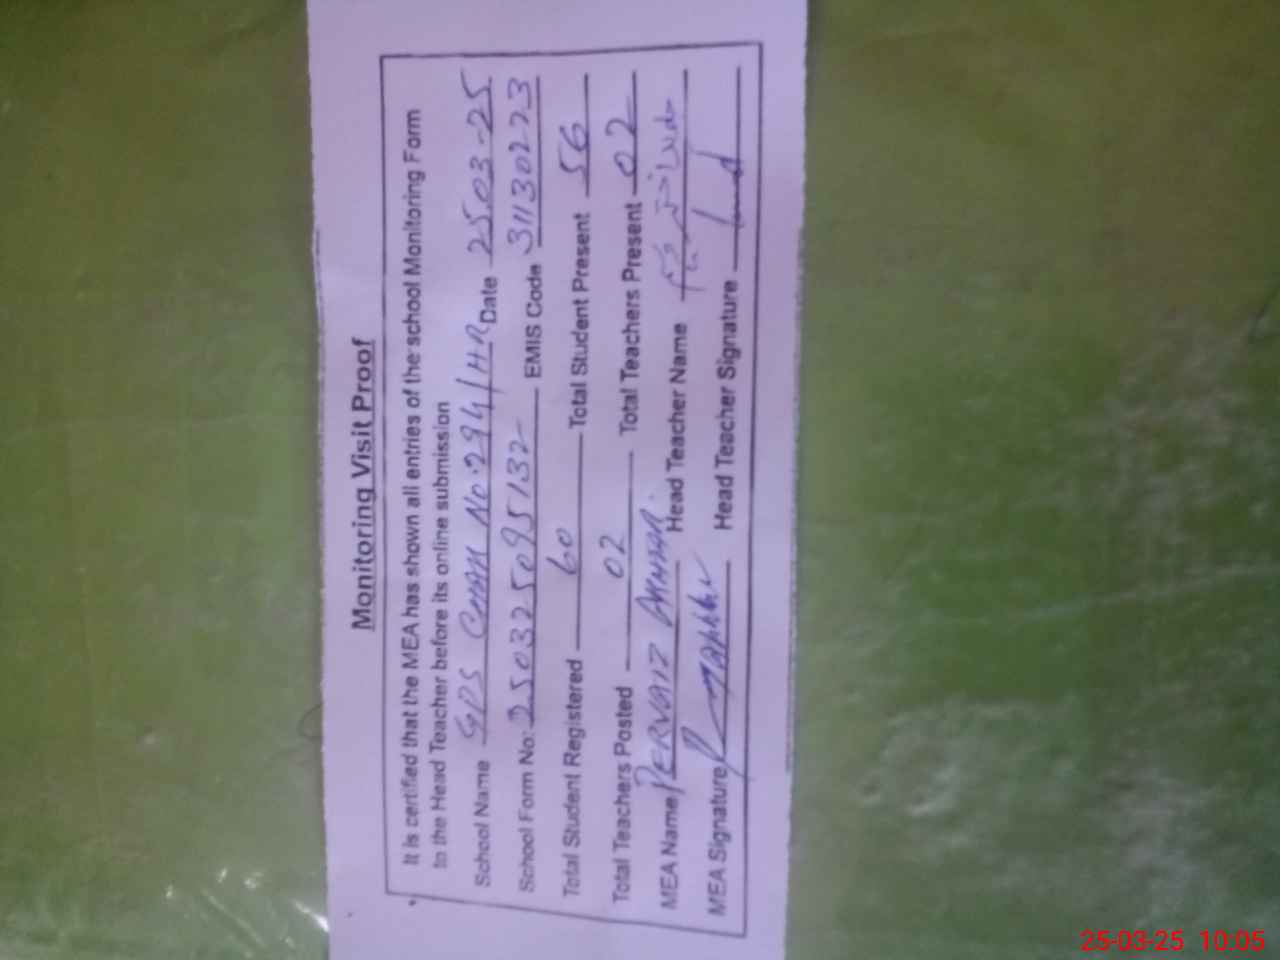 Monitoring Visit Proof
It is certified that the MEA has shown all entries of the school Monitoring Form
to the Head Teacher before its online submission
School Name GPS CHAK No. 294/HR Date 25.03-25
School Form No: 250325095132 EMIS Code 31130223
Total Student Registered 60 Total Student Present 56
Total Teachers Posted 02 Total Teachers Present 02
MEA Name PERVAIZ AKHTAR. Head Teacher Name
MEA Signature Head Teacher Signature
25-03-25 10:05